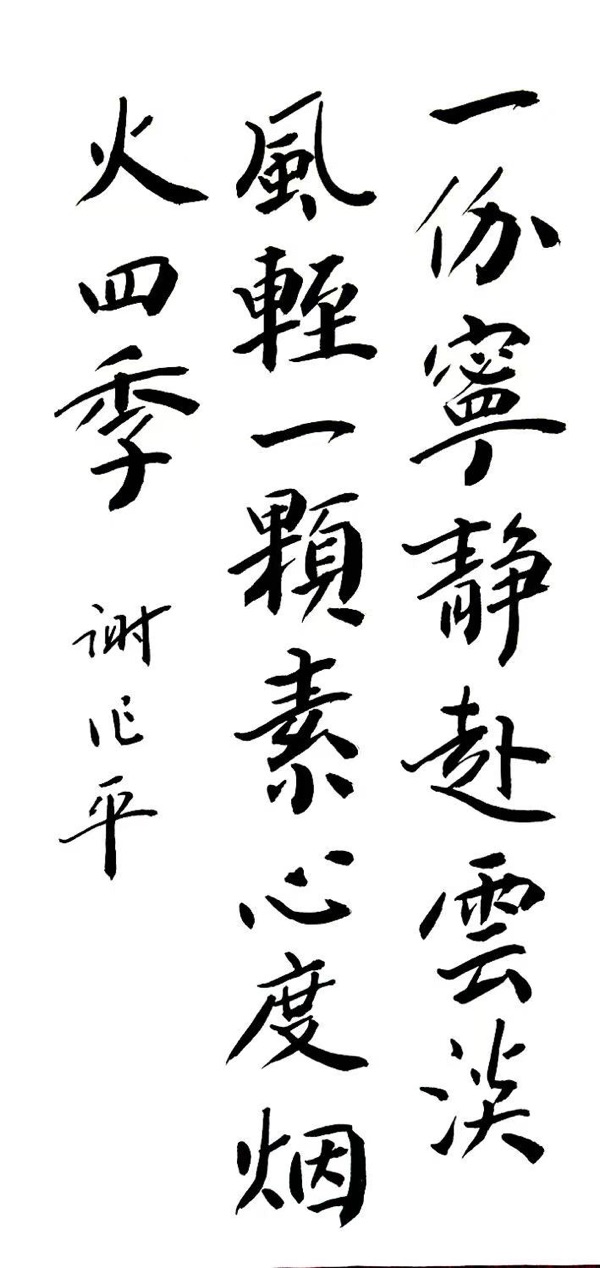 一份寧靜赴雲淡
風輕一顆素心度烟
火四季
谢作平